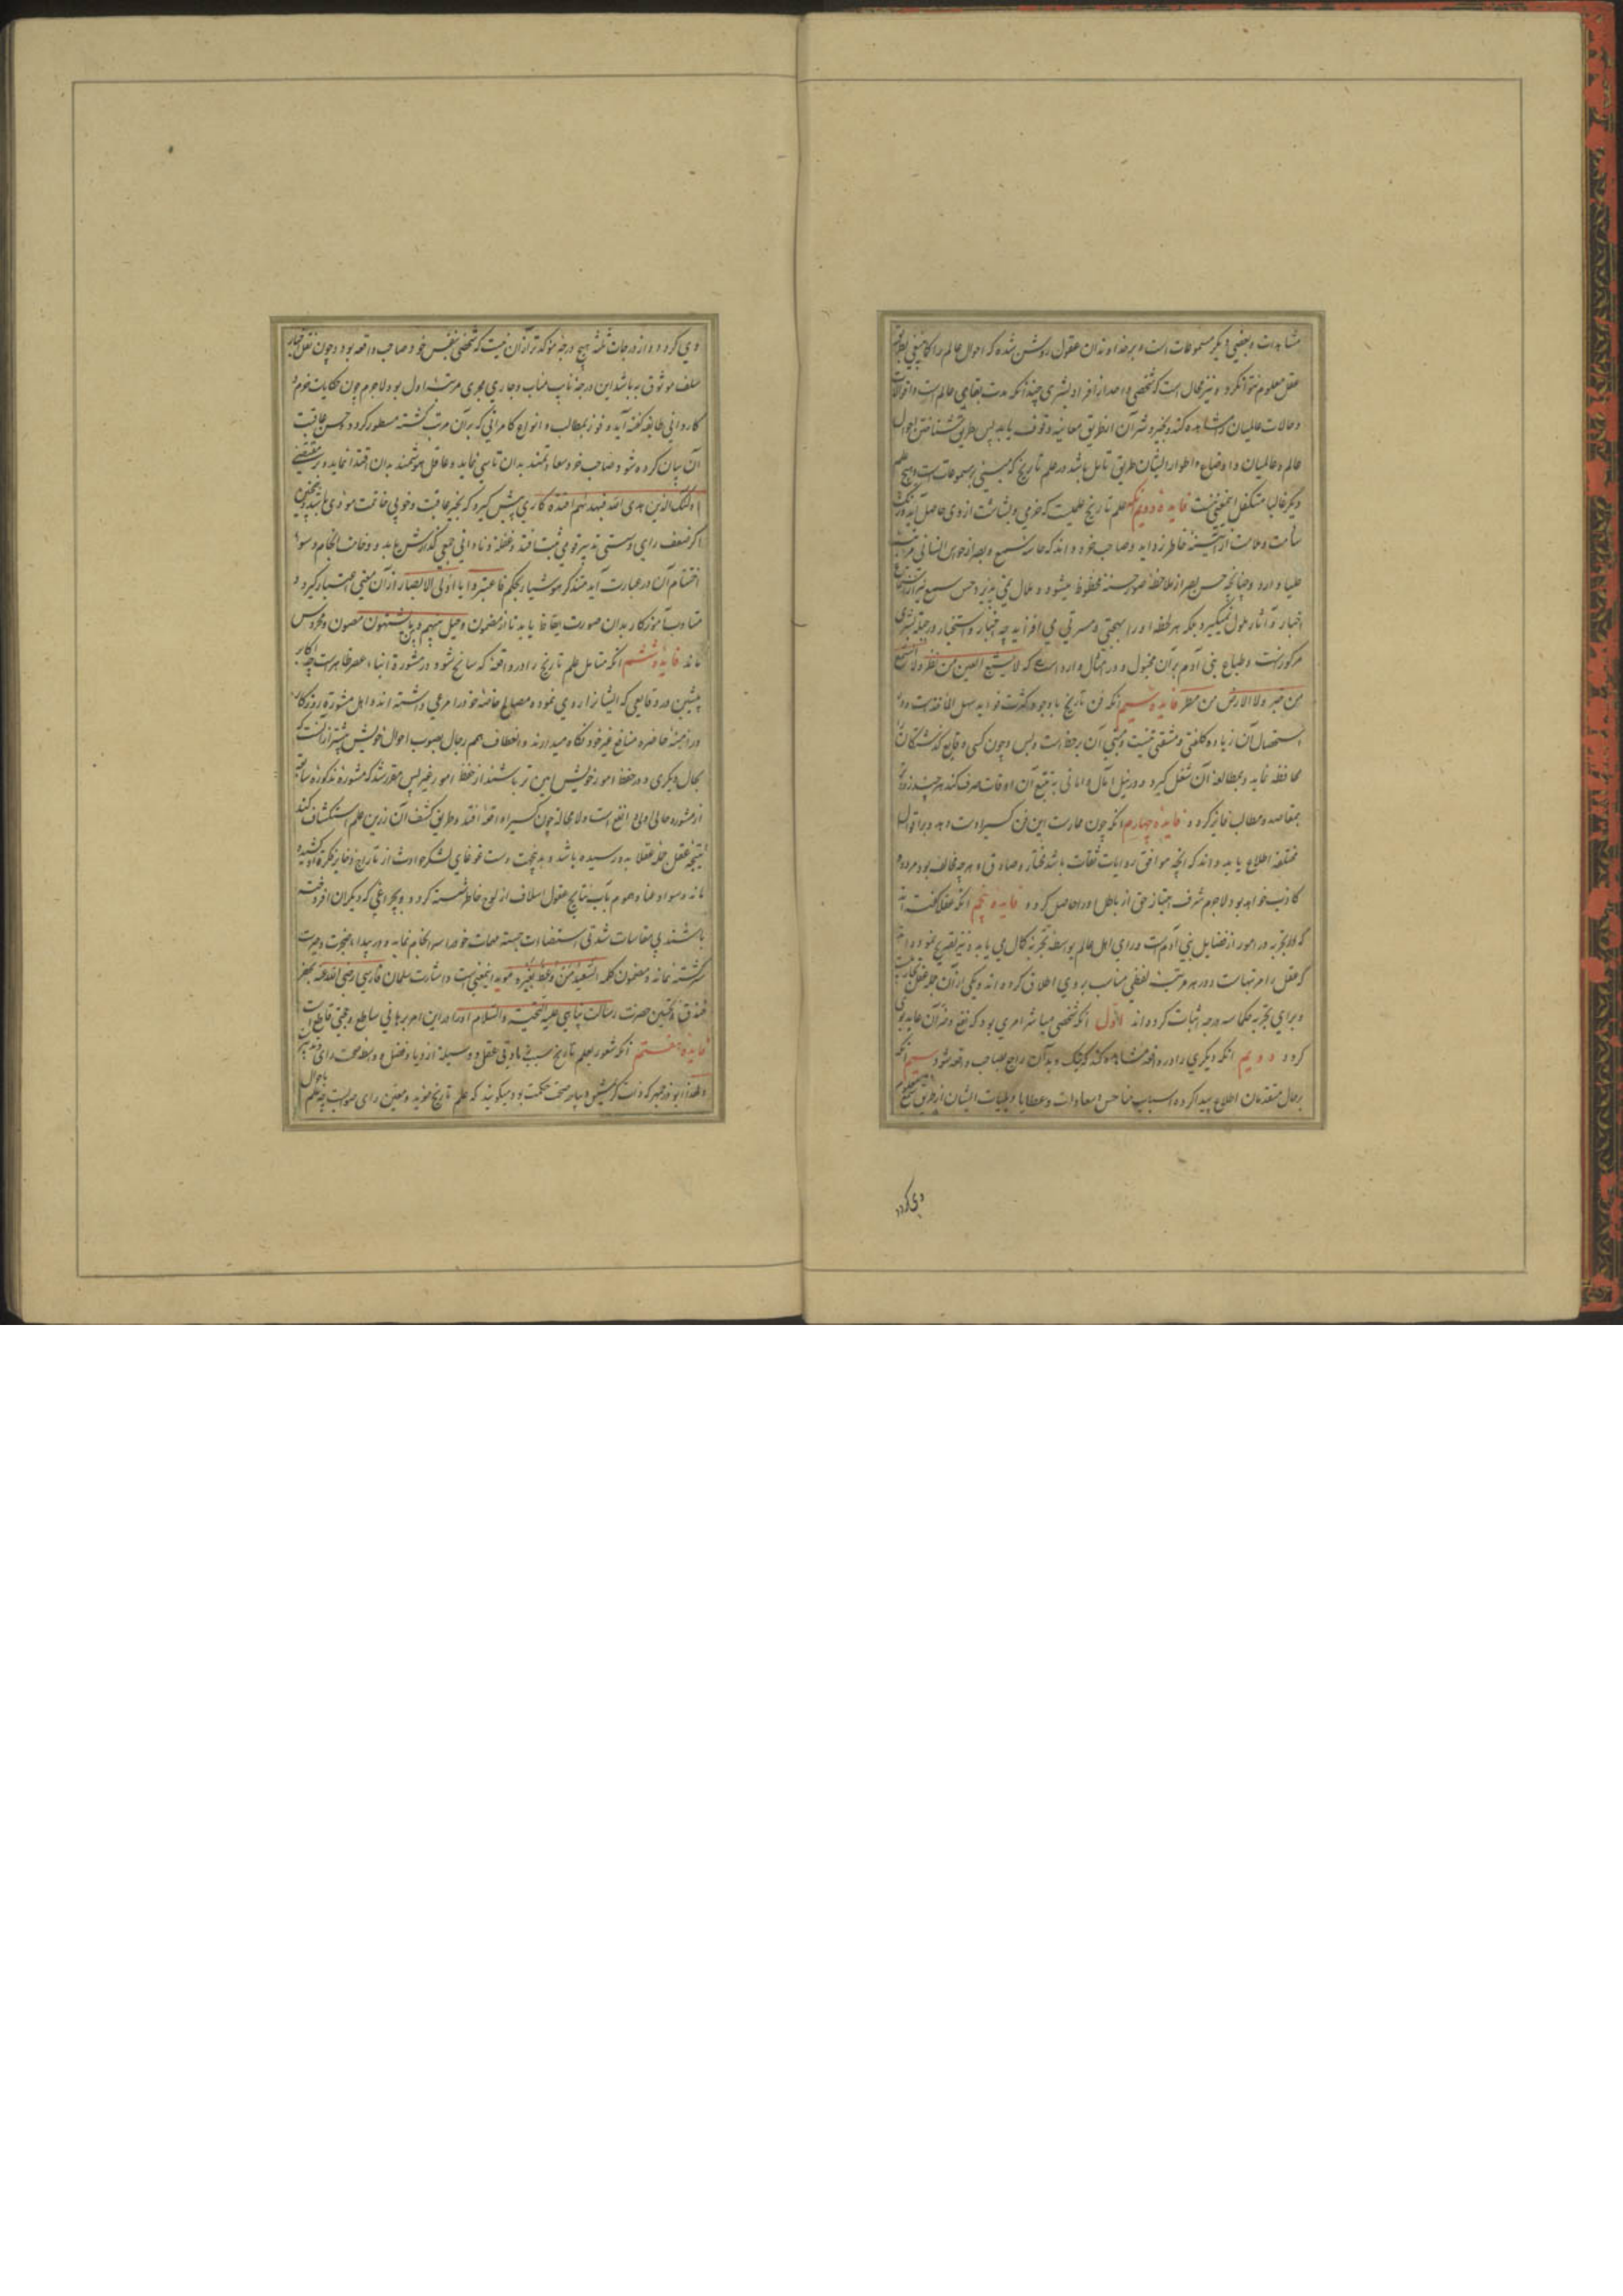 مشاهدات و بعضی دیگر مسموعات است و بر خداوندان عقول روشن شده که احوال عالم را کما ینبغی بطریق
عقل معلوم نتوان کرد و نیز محال است که شخصی واحد از افراد بشری چندانکه مدت بقای عالم است واقوالات
و حالات عالمیان را مشاهده کند و بخیر و شر آن از طریق معاینه وقوف یابد پس طریق شناختن احوال
عالم و عالمیان و اوضاع و اطوار ایشان طریق تامل باشد در علم تاریخ که مبنی بر مسموعات است و هیچ علم
دیگر غالبا متکفل اینمعنی نیست فایده دویم آنکه علم تاریخ علمیست که خرمی و بشاشت از وی حاصل آید و زنک
سآمت و ملامت از آینه خاطر زداید و صاحب خرد داند که حاسه سمع و بصر از حواس انسانی مراتب
علیا دارد و چنانچه حس بصر از ملاحظه صور حسنه محظوظ میشود و ملال نمی پذیرد حس سمع نیز از استماع
اخبار و آثار ملول نمیگیرد بلکه هر لحظه او را بهجتی و مسرتی می افزاید چه اخبار و استخبار در جبلت بشری
مرکوزست و طباع بنی آدم بر آن مجبول و در امثال وارد است که لا یشبع العین من نظر و لا السمع
من خبر و لا الارض من مطر فایده سیم آنکه فن تاریخ با وجود کثرت فواید سهل الماخذست و در
استحصال آن زیاده کلفتی و مشقتی نیست و مبنی آن بر حفظ است و بس و چون کسی وقایع گذشتگان
محافظه نماید و بمطالعه آن شغل گیرد و در نیل آمال و امانی به تتبع آن اوقات صرف کند هرچند زودتر
بمقاصد و مطالب فایز گردد فایده چهارم آنکه چون ممارست این فن کسی را دست دهد و بر اقوال
مختلفه اطلاع یابد داند که آنچه موافق روایات ثقات باشد مختار و صادق و هرچه مخالف بود مردود و
کاذب خواهد بود لاجرم شرف امتیاز حق از باطل او را حاصل گردد فایده پنجم آنکه عقلا گفته اند
که تجربه در امور از فضایل بنی آدمست و رای اهل عالم بواسطه تجربه کمال می یابد و نیز تصریح نموده اند
که عقل را مرتبهاست و در هر مرتبه لفظی مناسب بروی اطلاق کرده اند و یکی از آن جمله عقل تجاربست
و برای تجربه حکما سه درجه اثبات کرده اند اول آنکه شخصی مباشر امری بود که نفع و ضر آن عاید بوی
گردد دویم آنکه دیگری را در واقعه مشاهده کند که نیک و بد آن راجع بصاحب واقعه شود سیم آنکه
بر حال متقدمان اطلاع پیدا کرده اسباب مناحس و سعادات و عطایا و بلیات ایشان از طریق سمع معلوم
وی گردد
وی گردد و از درجات ثلثه هیچ درجه مؤکدتر از آن نیست که شخصی بنفس خود صاحب واقعه بود و چون نقل اخبار
سلف موثوق به باشد این درجه نایب مناب و جاری مجری مرتبه اول بود لاجرم چون حکایات حزم و
کاردانی طایفه گفته آید و فوز بمطالب و انواع کامرانی که بر آن مرتب گشته مسطور گردد و حسن عاقبت
آن بیان کرده شود صاحب خرد سعادتمند بدان تاسی نماید و عاقل هوشمند بدان اقتدا نماید و بر مقتضی
اولئک الذین هدی الله فبهدیهم اقتده کاری پیش گیرد که بخیر عاقبت و خوبی خاتمت مودی باشد و همچنین
اگر ضعف رای و سستی تدبیر قومی ثبت افتد و غفلت و نادانی جمعی گذارش یابد و وخامت انجام و سوء
اختتام آن در عبارت آید متذکر هوشیار بحکم فاعتبروا یا اولی الابصار از آن معنی اعتبار گیرد و
متادب آموزکار بدان صورت ایقاظ یابد تا از مضمون و حیل بینهم و بین ما یشتهون مصون و محروس
ماند فایده ششم آنکه متامل علم تاریخ را در واقعه که سانح شود در مشورت ابناء عصر ظاهرست چه اکابر
پیشین در وقایعی که ایشان را روی نموده مصالح خاصه خود را مرعی داشته اند و اهل مشورت روزگار
در ازمنه حاضره منافع غیر خود نگاه میدارند و انعطاف همم رجال بصوب احوال خویش بیشتر از آنست که
بحال دیگری و در حفظ امور خویش امین تر باشند از حفظ امور غیر پس مقرر شد که مشوره مذکوره سابقه
از مشوره حالی اولی و انفع است و لا محاله چون کسی را واقعه افتد و طریق کشف آن از این علم استکشاف کند
نتیجه عقل جمله عقلا بدو رسیده باشد و بدین جهت دست غوغای لشکر حوادث از تاریخ ذخایر فکرت او کشیده
ماند و سواد عنا و هموم بآب نتایج عقول اسلاف از لوح خاطر شسته گردد و بچراغی که دیگران افروخته
باشند بی مقاسات شدتی استضاءت جسته مهمات خود را سرانجام نماید و در بیداء ضجرت و حیرت
سرگشته نماند و مضمون کلمه السعید من وعظ بغیره موید اینمعنی است و اشارت سلمان فارسی رضی الله عنه بحفر
خندق و تحسین حضرت رسالت پناهی علیه التحیه و السلام او را در این امر برهانی ساطع و حجتی قاطع است
فایده هفتم آنکه شعور بعلم تاریخ سبب زیادتی عقل و وسیله ازدیاد فضل و واسطه صحت رای و تدبیر
و لهذا ابوذرجمهر که ذات گرامیش جامع حکمت بود میگوید که علم تاریخ مؤید و معین رای صوابست چه علم باحوال